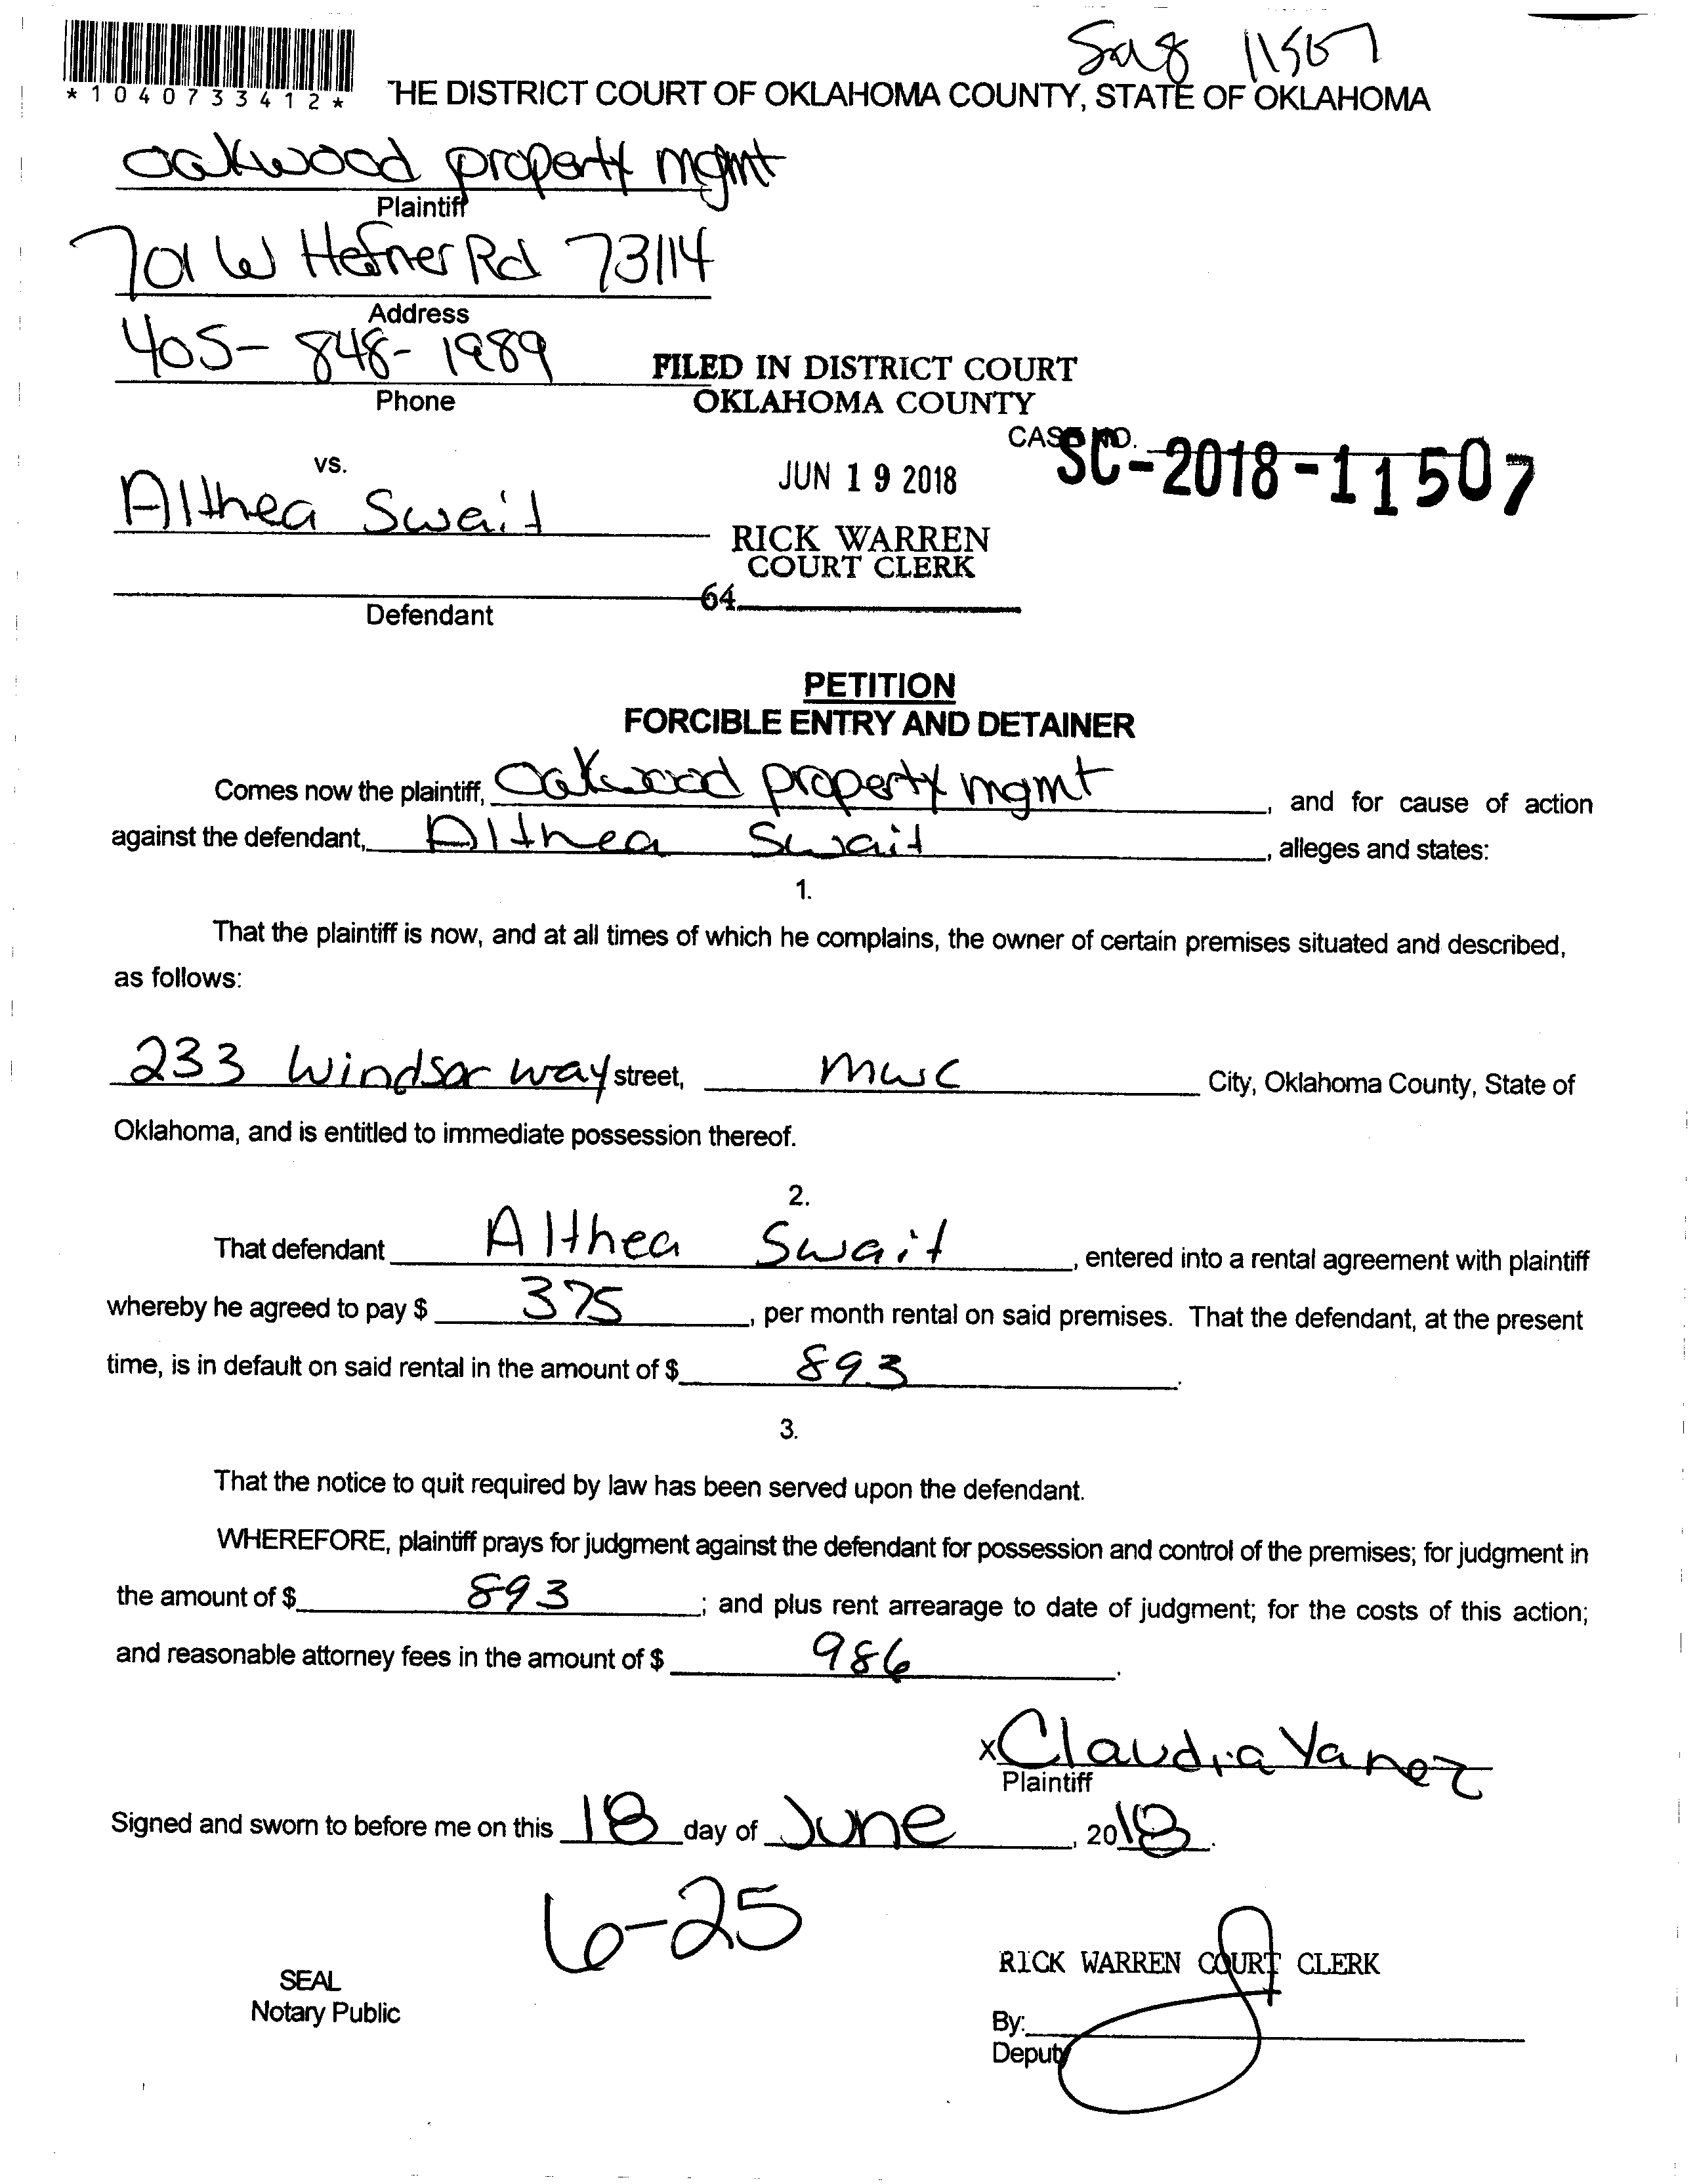 *1040733412*
THE DISTRICT COURT OF OKLAHOMA COUNTY, STATE OF OKLAHOMA
11507
Oakwood property mgmt
Plaintiff
701 W Hefner Rd 73114
Address
405-848-1989
Phone
FILED IN DISTRICT COURT
OKLAHOMA COUNTY
CASE NO. SC-2018-11507
vs.
JUN 19 2018
Althea Swait
RICK WARREN
COURT CLERK
64
Defendant
PETITION
FORCIBLE ENTRY AND DETAINER
Comes now the plaintiff, Oakwood property mgmt, and for cause of action
against the defendant, Althea Swait, alleges and states:
1.
That the plaintiff is now, and at all times of which he complains, the owner of certain premises situated and described,
as follows:
233 Windsor way street, mwc City, Oklahoma County, State of
Oklahoma, and is entitled to immediate possession thereof.
2.
That defendant Althea Swait, entered into a rental agreement with plaintiff
whereby he agreed to pay $ 375, per month rental on said premises. That the defendant, at the present
time, is in default on said rental in the amount of $ 893.
3.
That the notice to quit required by law has been served upon the defendant.
WHEREFORE, plaintiff prays for judgment against the defendant for possession and control of the premises; for judgment in
the amount of $ 893; and plus rent arrearage to date of judgment; for the costs of this action;
and reasonable attorney fees in the amount of $ 986.
x Claudia Yanez
Plaintiff
Signed and sworn to before me on this 18 day of June, 2018.
6-25
RICK WARREN COURT CLERK
SEAL
Notary Public
By:
Deputy